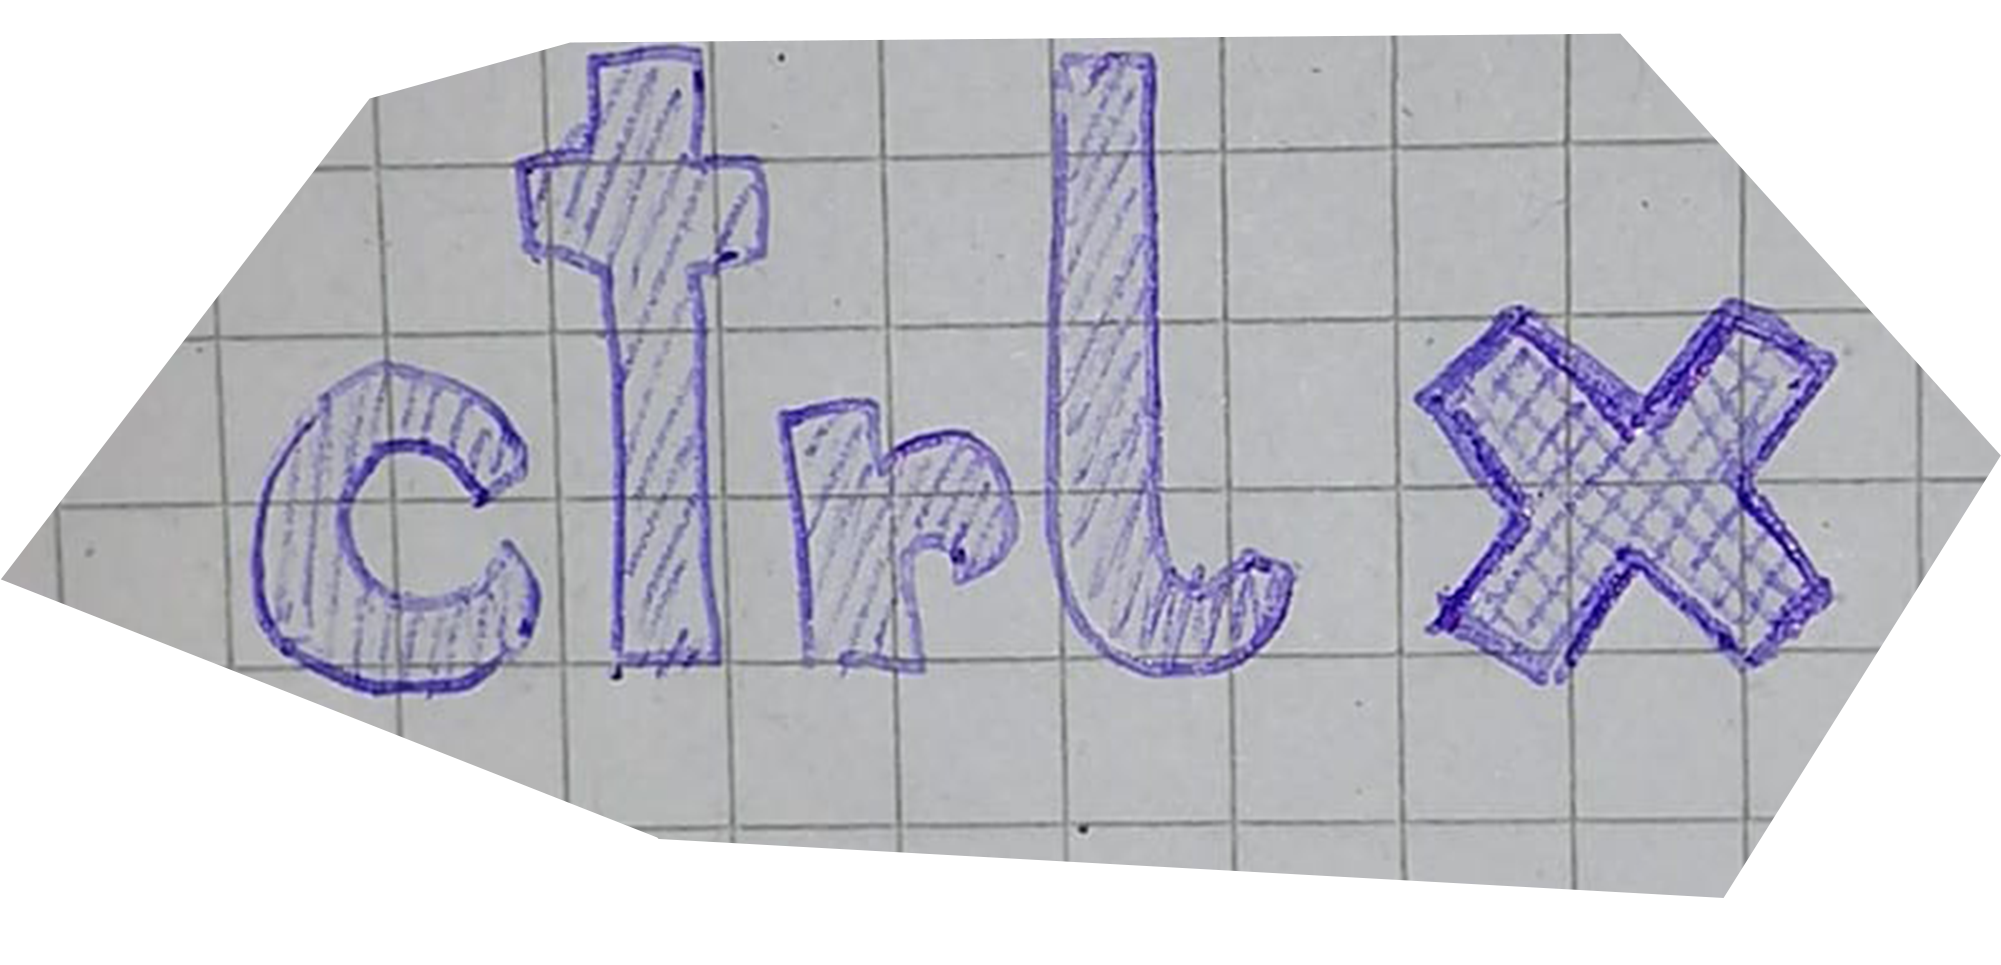 ctrl x